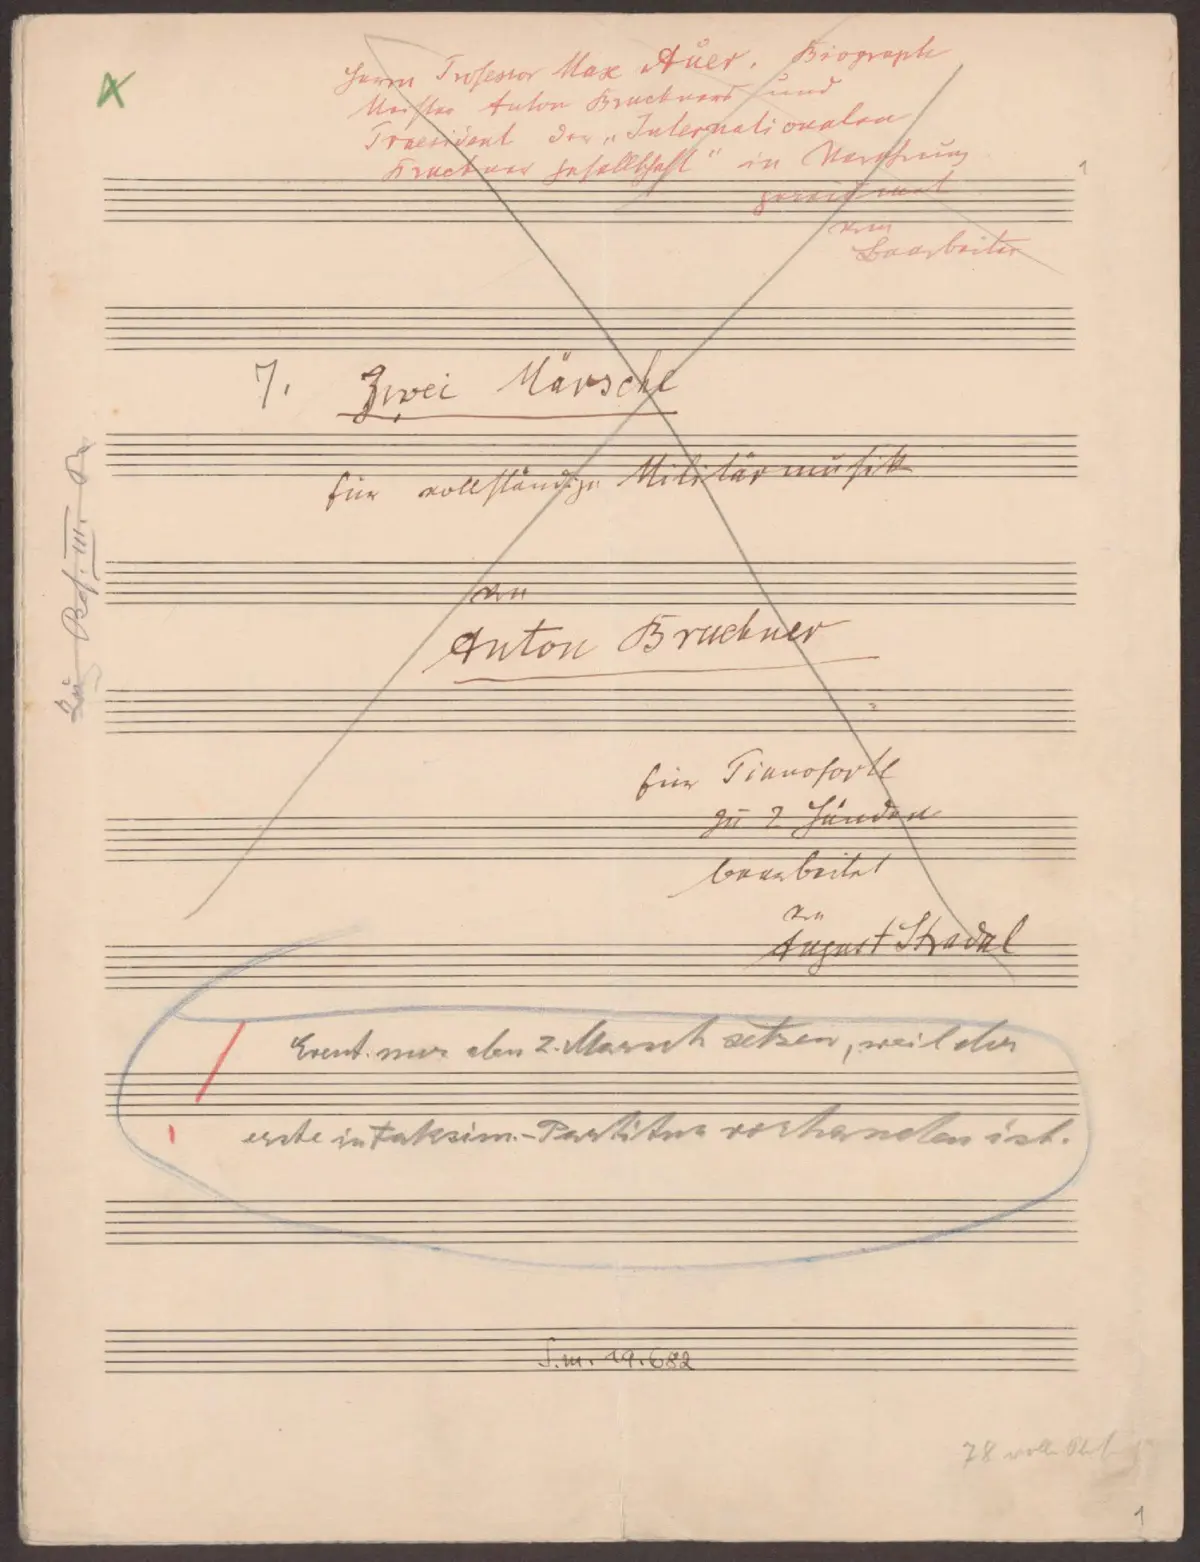 Herrn Professor Max Auer, Biograph
Meister Anton Bruckners und
Praesident der „Internationalen
Bruckner Gesellschaft" in
gewidmet
vom
Bearbeiter
1
7. Zwei Märsche
für vollständige Militärmusik
von
Anton Bruckner
für Pianoforte
zu 2 Händen
bearbeitet
von
August Stradal
Event. nur den 2. Marsch setzen, weil der
erste in Faksim.-Partitur vorhanden ist.
S.m. 19.682
78
1
Zu III.